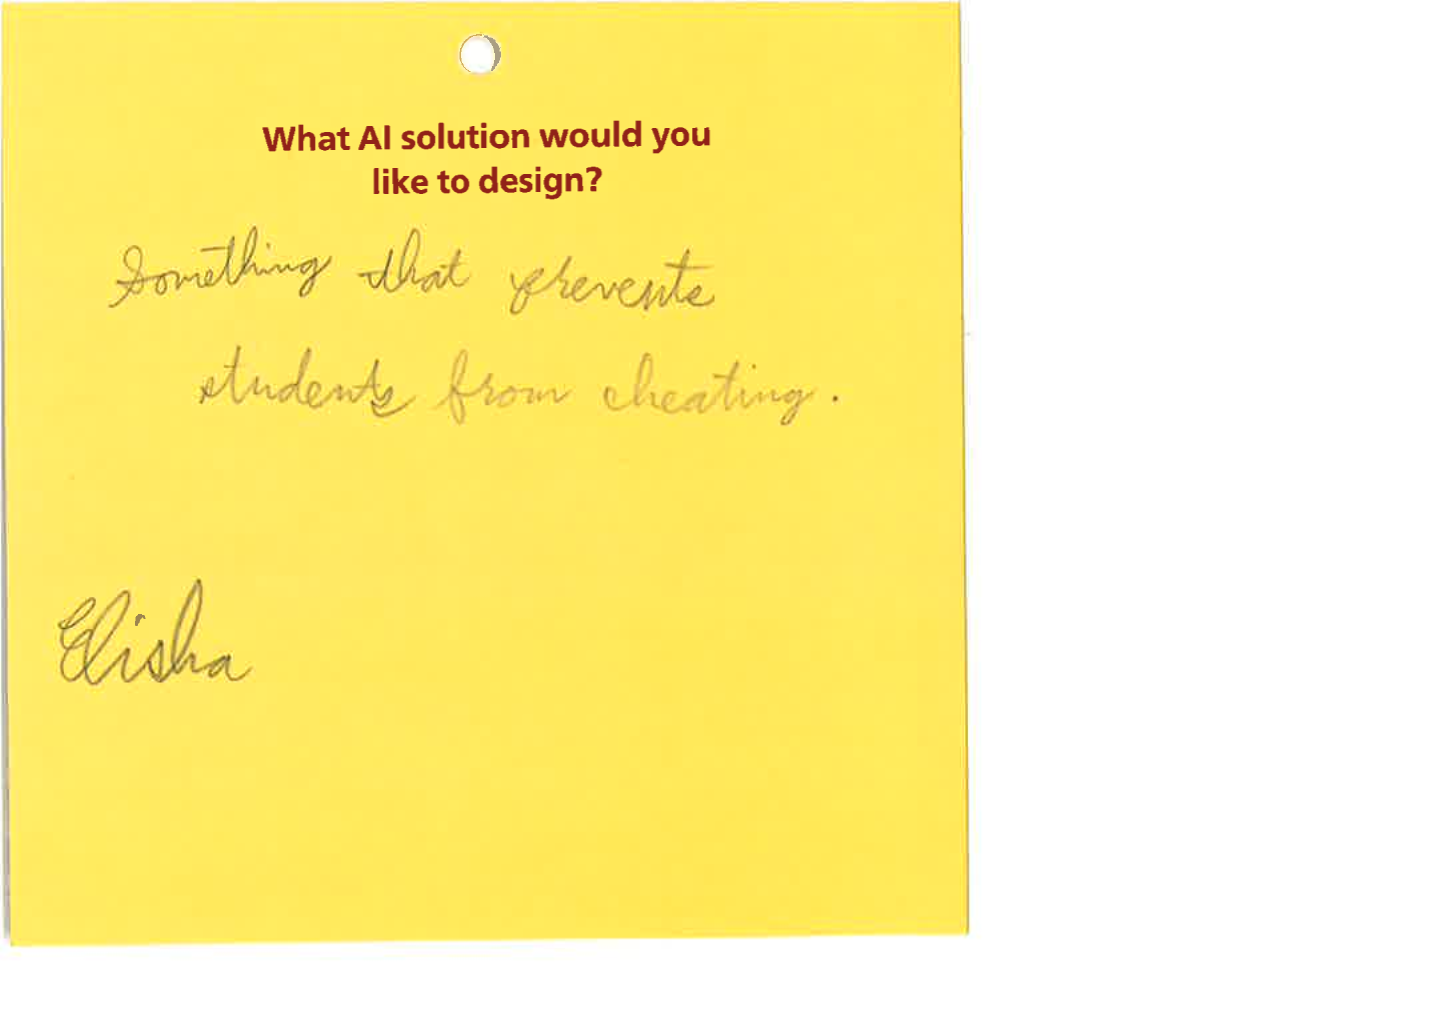 What AI solution would you
like to design?
Something that prevents
students from cheating.
Elisha